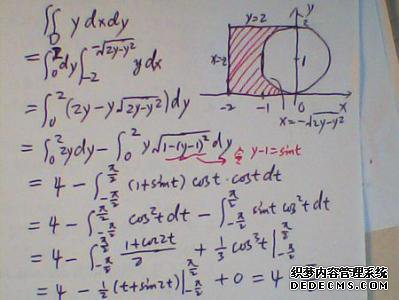 ∬_D y dxdy
= ∫_0^2 dy ∫_{-2}^{-√(2y-y²)} y dx
= ∫_0^2 (2y - y√(2y-y²)) dy
= ∫_0^2 2y dy - ∫_0^2 y√(1-(y-1)²) dy → 令 y-1=sint
= 4 - ∫_{-π/2}^{π/2} (1+sint) cost · cost dt
= 4 - ∫_{-π/2}^{π/2} cos²t dt - ∫_{-π/2}^{π/2} sint cos²t dt
= 4 - ∫_{-π/2}^{π/2} (1+cos2t)/2 + 1/3 cos³t |_{-π/2}^{π/2}
= 4 - 1/2 (t+sin2t) |_{-π/2}^{π/2} + 0 = 4
y=2
y
2
x=-2
1
-2
-1
0
x
x=-√(2y-y²)
织梦内容管理系统
DEDECMS.COM